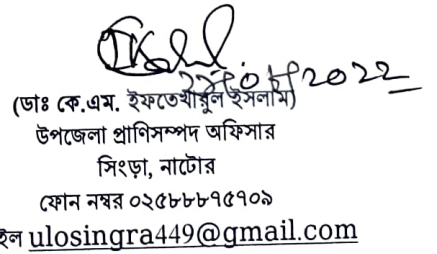 2022
(ডাঃ কে.এম. ইফতেখারুল ইসলাম)
উপজেলা প্রাণিসম্পদ অফিসার
সিংড়া, নাটোর
ফোন নম্বর ০২৫৮৮৮৭৫৭০৯
ইল ulosingra449@gmail.com